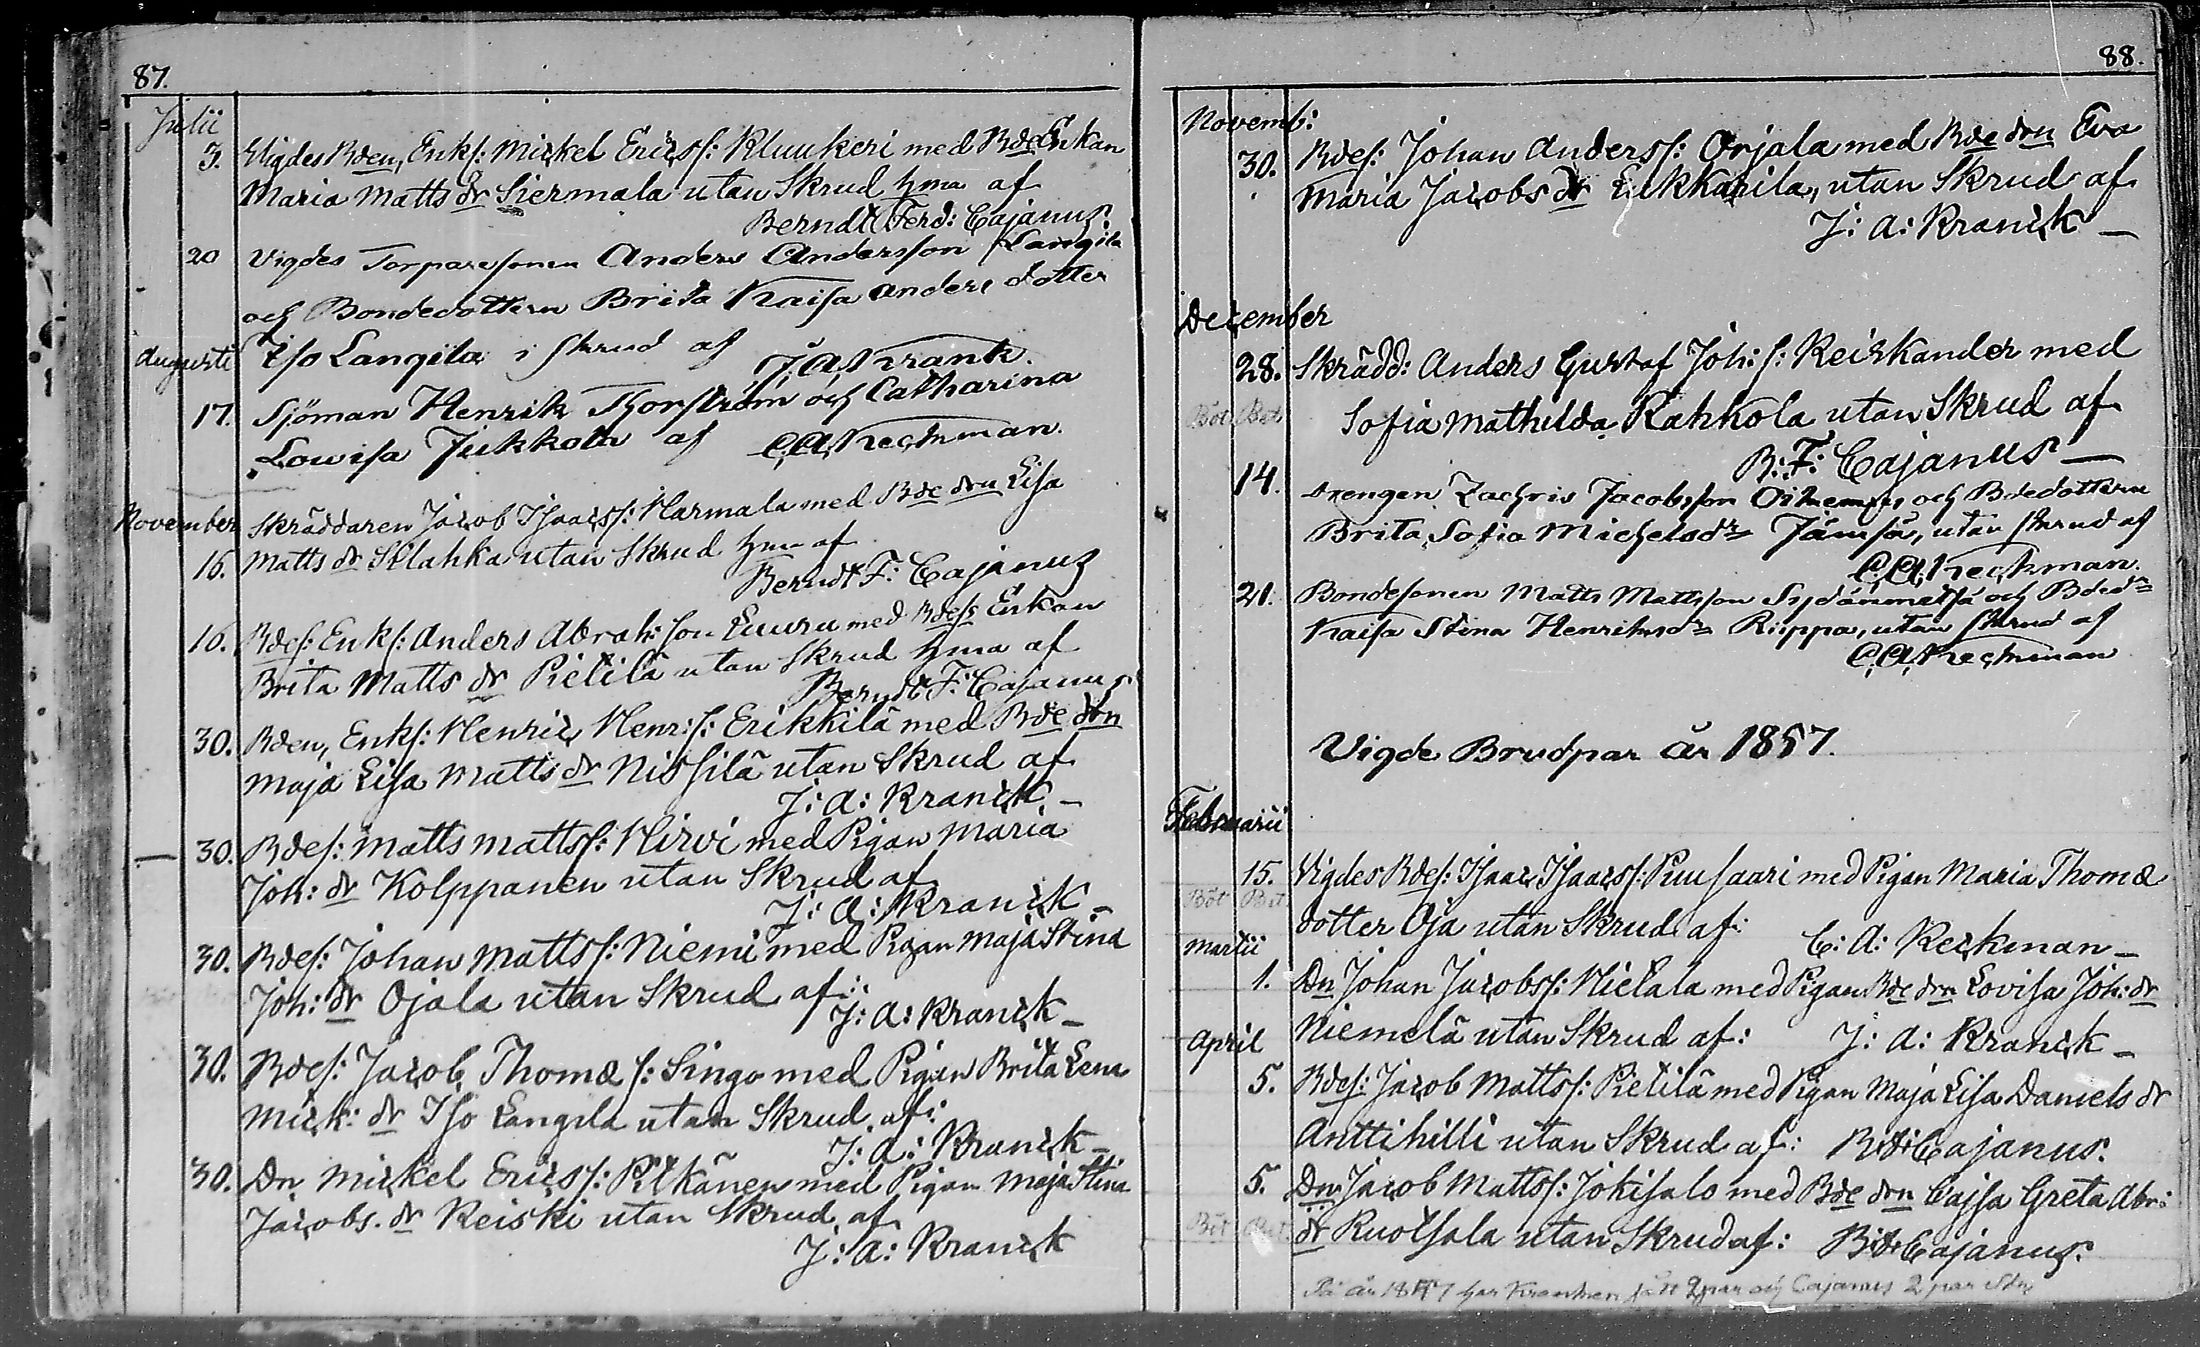 87.
Julii
3. Vigdes Bden, Enkl: Mickel Ericss: Kluukeri med Bde Enkan
Maria Matts dr Siermala utan Skrud hma af
Berndt Ferd: Cajanus.
20 Vigdes Torparesonen Anders Andersson Langila
och Bondedottern Brita Kaisa Anders dotter
Iso Langila i skrud af J. A. Krank.
Augusti
17. Sjöman Henrik Thorström och Catharina
Lowisa Jukkola af C. A. Keckman.
November
16. Skräddaren Jacob Isaacss: Harmala med Bde don Lisa
Matts dr Sklahka utan Skrud hma af
Berndt F: Cajanus
16. Bdes: Enkl: Anders Abrah: son Luuru med Bdess Enkan
Brita Matts dr Pietilä utan Skrud hma af
Berndt F: Cajanus
30. Bden, Enkl: Henric Henr: s: Erikkilä med Bde don
Maja Lisa Matts dr Nissilä utan Skrud af
J: A: Kranck –
30. Bdes: Matts Mattss: Hirvi med Pigan Maria
Joh: dr Kolppanen utan Skrud af
J: A: Kranck –
30. Bdes: Johan Mattss: Niemi med Pigan Maja Stina
Joh: dr Ojala utan Skrud af:
J: A: Kranck –
30. Bdes: Jacob Thomæ s: Singo med Pigan Brita Lena
Mick: dr Iso Langila utan Skrud af:
J: A: Kranck –
30. Dn Mickel Ericss: Pitkänen med Pigan Maja Stina
Jacobs. dr Keiski utan Skrud af
J: A: Kranck
88.
Novemb:
30. Bdes: Johan Anderss: Orjala med Bde don Eva
Maria Jacobs dr Eukkarila, utan Skrud af
J: A: Kranck –
December
28. Skrädd: Anders Gustaf Joh: s: Keiskander med
Böt Bet
Sofia Mathilda Rahkola utan Skrud af
B: F: Cajanus –
14. Drengen Zachris Jacobsson och Bdedottern
Brita Sofia Michelsdr Jämsä, utan skrud af
C. A. Keckman.
21. Bondesonen Matts Mattsson Sydänmetsä och Bdedr
Kaisa Stina Henriksdr Riippa, utan skrud af
C. A. Keckman
Vigde Brudpar År 1857.
Februarii
15. Vigdes Bdes: Isaac Isaacss: Puusaari med Pigan Maria Thomæ
Böt Bet
dotter Oja utan Skrud af: C: A: Keckman –
Martii
1. Dn Johan Jacobss: Hietala med Pigan Bde don Lovisa Joh: dr
Niemelä utan Skrud af: J: A: Kranck –
April
5. Bdes: Jacob Mattss: Pietilä med Pigan Maja Lisa Daniels dr
Anttihilli utan Skrud af: B: F: Cajanus.
5. Dn Jacob Mattss: Jokisalo med Bde don Cajsa Greta Abr:
Böt Bet
dr Ruotsala utan Skrud af: B: F: Cajanus.
På år 1857 har Krancken fått 2 par och Cajanus 2 par